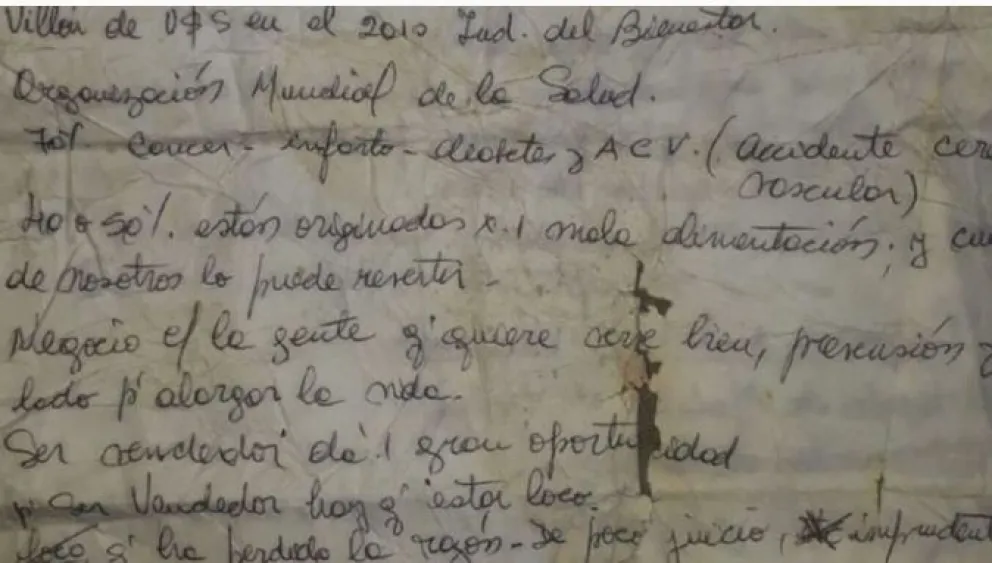 Villón de U$S en el 2010 Ind. del Bienestar.
Organización Mundial de la Salud.
70% Cancer - infarto - diabetes y ACV. (Accidente cere
vascular)
40 o 50%. están originados x 1 mala alimentación; y cu
de nosotros lo puede revertir -
Negocio c/ la gente q' quiere bien,
todo p' alargar la vida.
Ser vendedor da 1 gran oportunidad
p' ser Vendedor hay q' estar loco.
loco q' ha perdido la razón - De poco juicio, imprudent